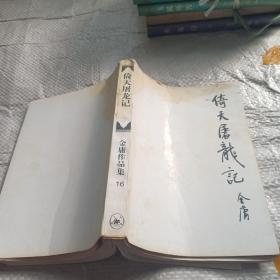 倚天屠龙记
金庸作品集
16
倚天屠龍記
金庸